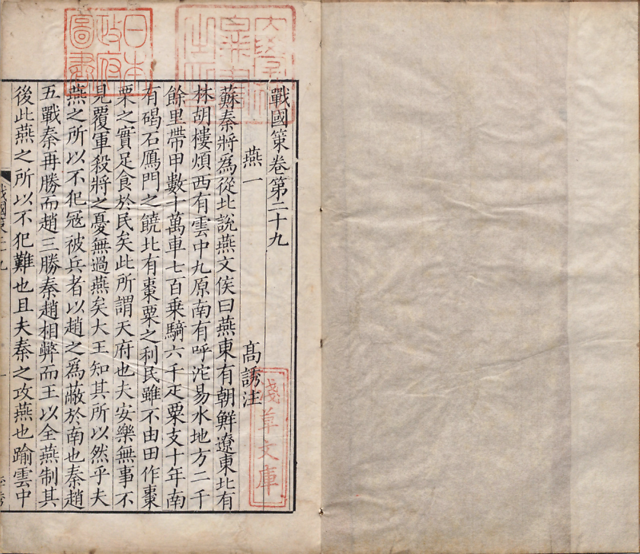 戰國策卷第二十九
燕一 高誘注
蘇秦將為從北說燕文侯曰燕東有朝鮮遼東北有
林胡樓煩西有雲中九原南有呼沱易水地方二千
餘里帶甲數十萬車七百乗騎六千疋粟支十年南
有碣石鴈門之饒北有棗粟之利民雖不由田作棗
栗之實足食於民矣此所謂天府也夫安樂無事不
見覆軍殺將之憂無過燕矣大王知其所以然乎夫
燕之所以不犯冦被兵者以趙之為蔽於南也秦趙
五戰秦再勝而趙三勝秦趙相弊而王以全燕制其
後此燕之所以不犯難也且夫秦之攻燕也踰雲中
日本
政府
圖書
淺草文庫